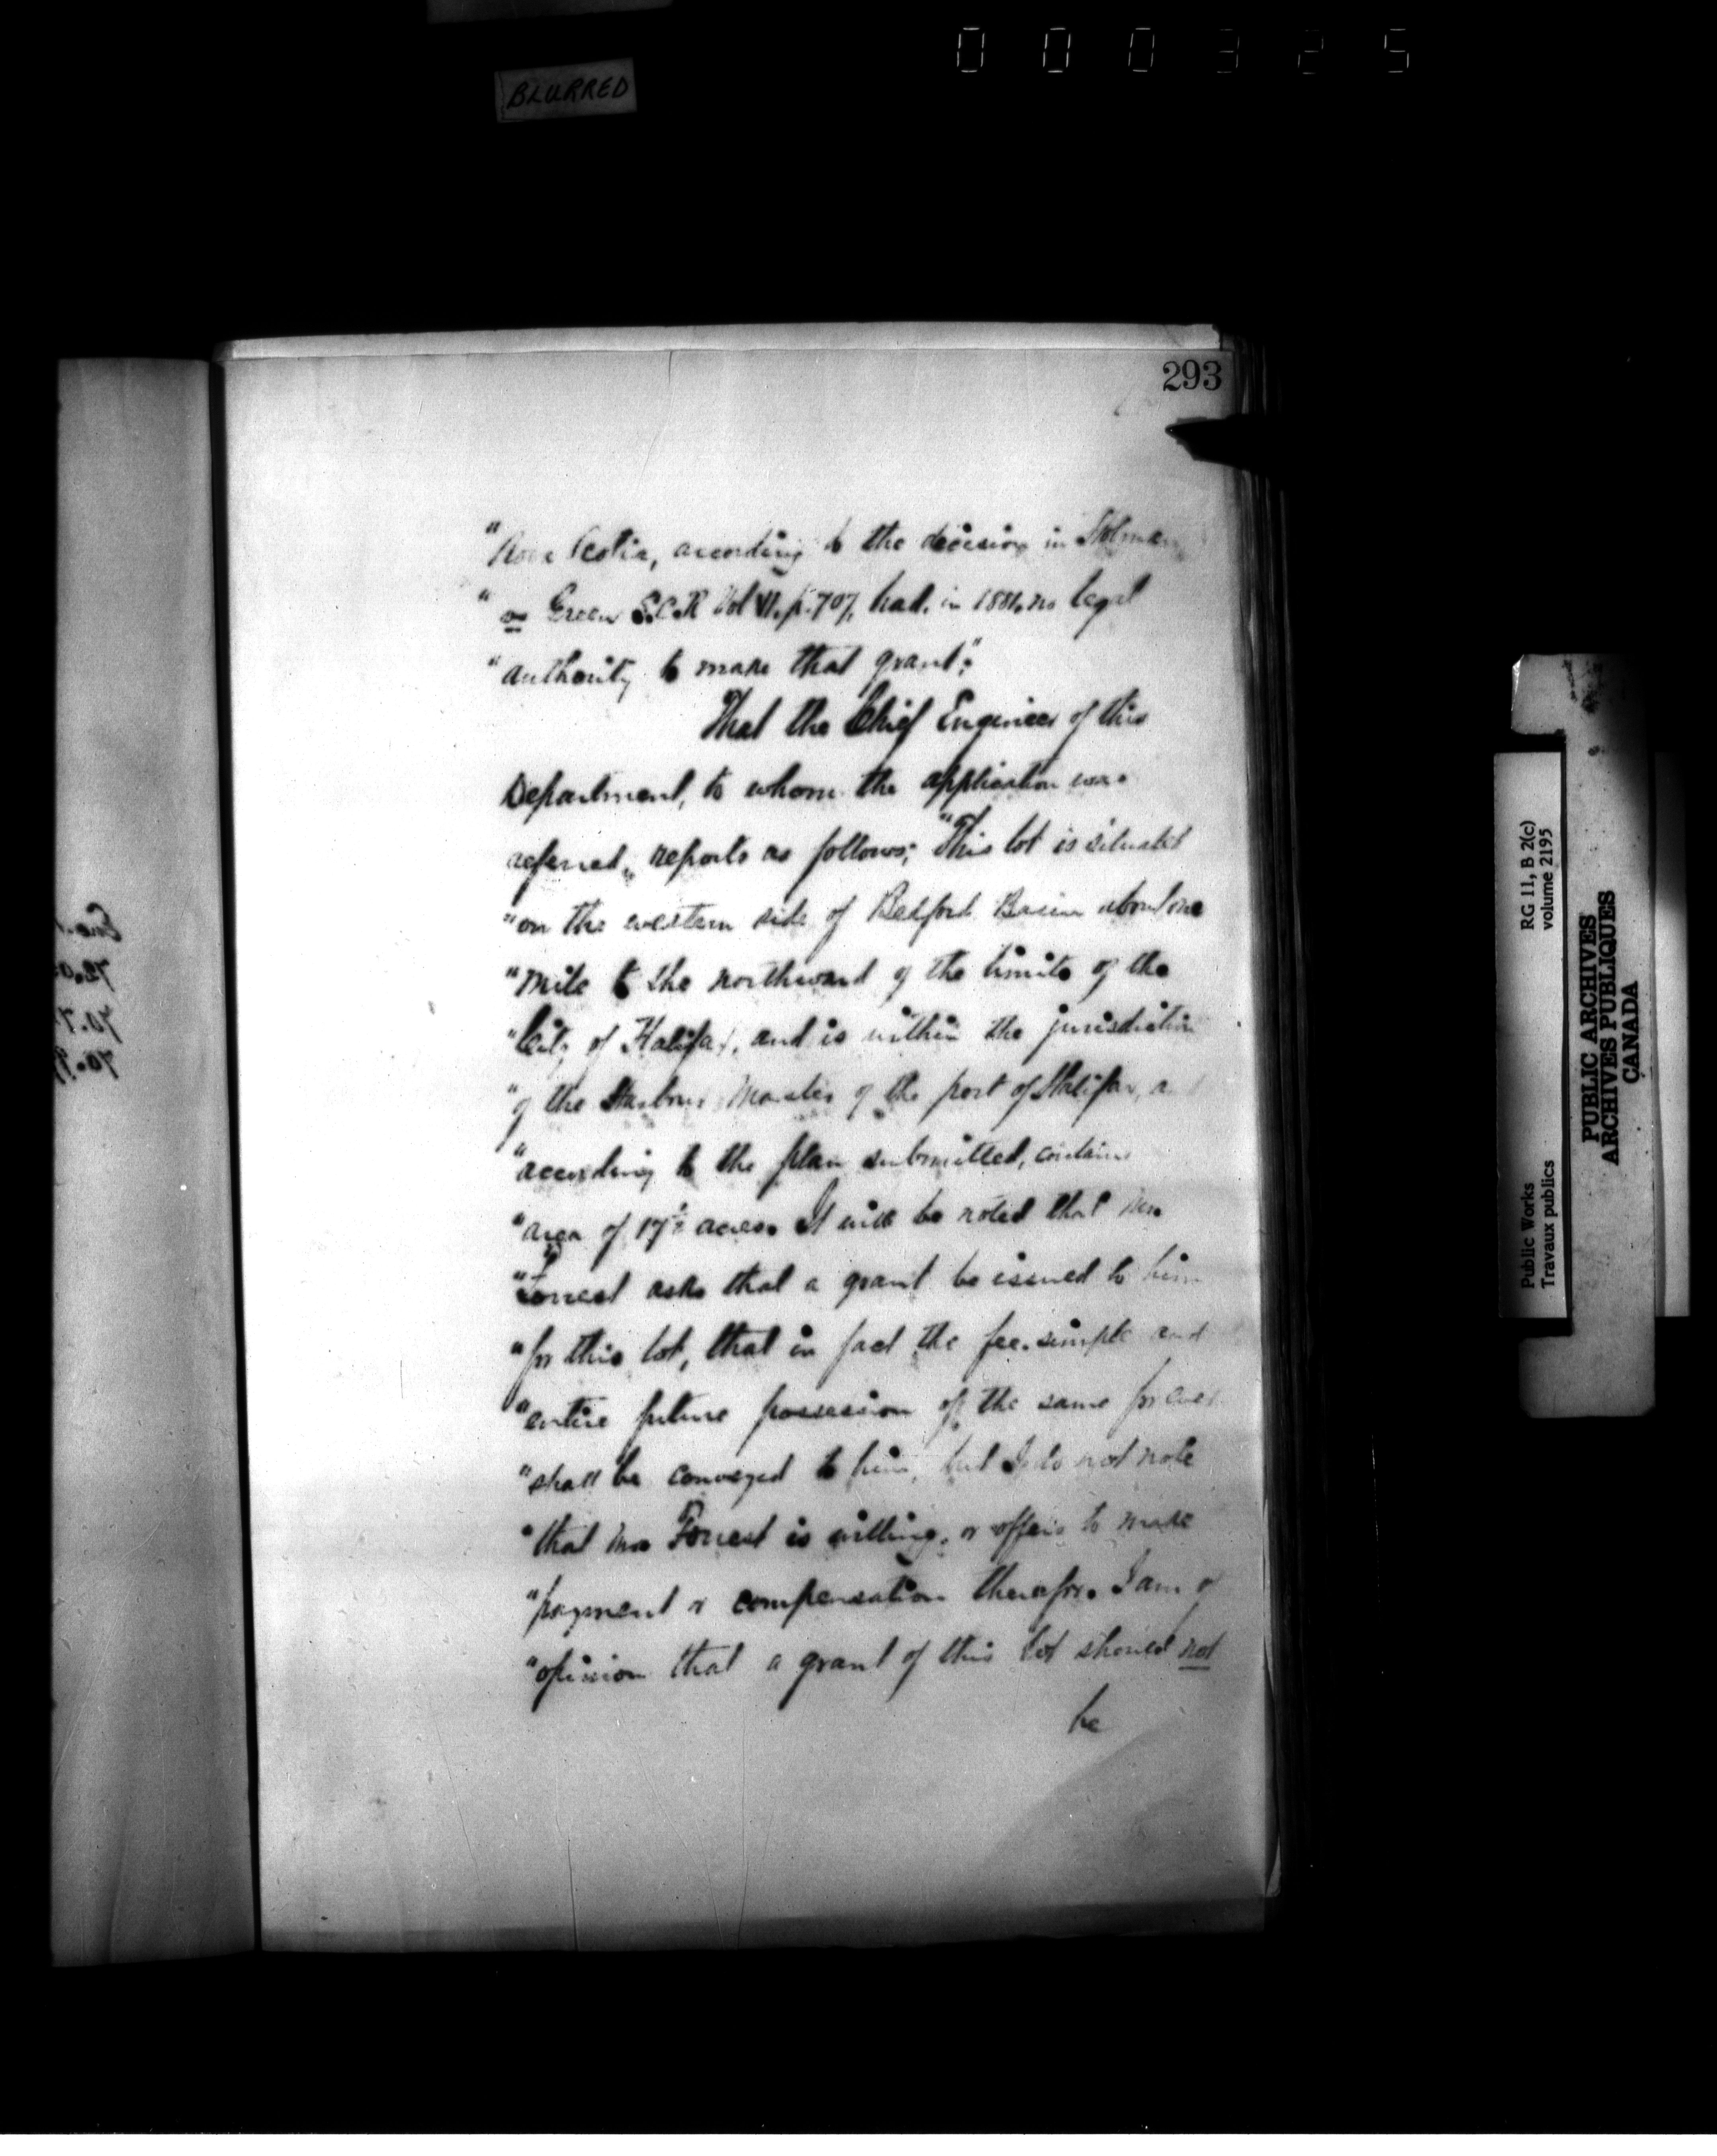 000325
BLURRED
293
"Nova Scotia, according to the decision in Holman
"vs Green S.C.R Vol VI. p. 707, had, in 1881, no legal
"authority to make that grant".
That the Chief Engineer of this
Department, to whom the application was
referred, reports as follows; "This lot is situated
"on the western side of Bedford Basin about one
"mile to the northward of the limits of the
"City of Halifax, and is within the jurisdiction
"of the Harbour Master of the port of Halifax,
"according to the plan submitted, contains
"area of 17½ acres. It will be noted that Mr.
"Forrest asks that a grant be issued to him
"for this lot, that in fact the fee simple and
"entire future possession of the same for ever
"shall be conveyed to him, but I do not note
"that Mr Forrest is willing, or offers to make
"payment or compensation therefor. I am of
"opinion that a grant of this lot should not
be
Public Works
Travaux publics
RG 11, B 2(c)
volume 2195
PUBLIC ARCHIVES
ARCHIVES PUBLIQUES
CANADA